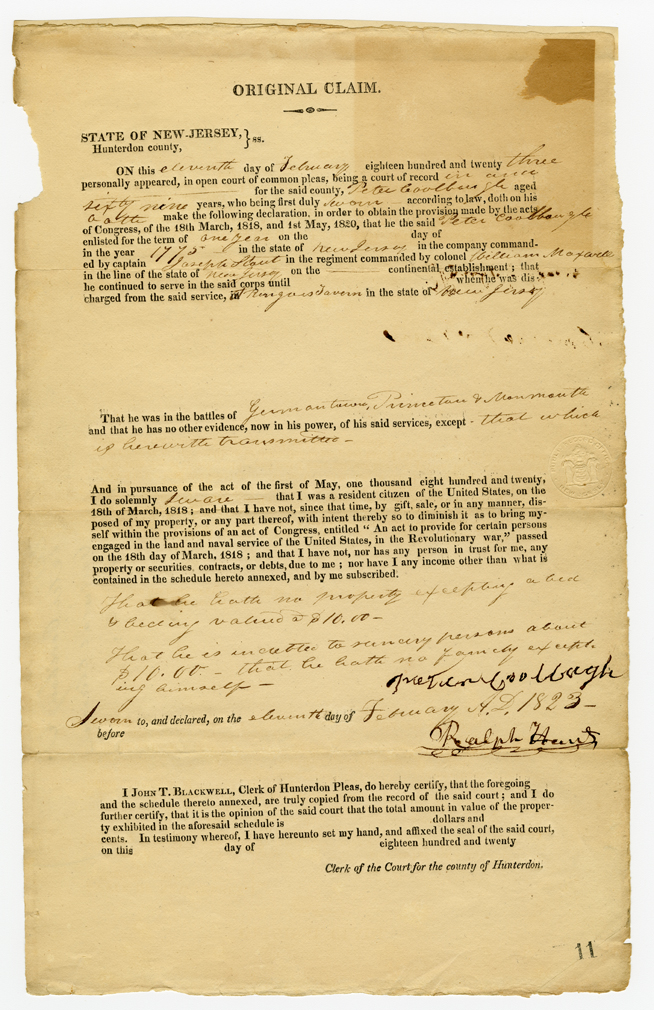 ORIGINAL CLAIM.
STATE OF NEW-JERSEY, } ss.
Hunterdon county,
ON this eleventh day of February eighteen hundred and twenty three
personally appeared, in open court of common pleas, being a court of record in and
for the said county, Peter Coolbaugh aged
sixty nine years, who being first duly sworn according to law, doth on his
oath make the following declaration, in order to obtain the provision made by the acts
of Congress, of the 18th March, 1818, and 1st May, 1820, that he the said Peter Coolbaugh
enlisted for the term of one year on the day of
in the year 1775 in the state of New Jersey in the company command-
ed by captain Joseph Stout in the regiment commanded by colonel William Maxwell
in the line of the state of New Jersey on the continental establishment; that
he continued to serve in the said corps until when he was dis-
charged from the said service, at Ringoes Tavern in the state of New Jersey
That he was in the battles of Germantown, Princeton & Monmouth
and that he has no other evidence, now in his power, of his said services, except that which
is herewith transmitted
And in pursuance of the act of the first of May, one thousand eight hundred and twenty,
I do solemnly sware that I was a resident citizen of the United States, on the
18th of March, 1818; and that I have not, since that time, by gift, sale, or in any manner, dis-
posed of my property, or any part thereof, with intent thereby so to diminish it as to bring my-
self within the provisions of an act of Congress, entitled "An act to provide for certain persons
engaged in the land and naval service of the United States, in the Revolutionary war," passed
on the 18th day of March, 1818; and that I have not, nor has any person in trust for me, any
property or securities, contracts, or debts, due to me; nor have I any income other than what is
contained in the schedule hereto annexed, and by me subscribed.
That he hath no property excepting a bed
& beding valued @ $10.00 -
That he is indebted to sundry persons about
$10.00 - that he hath no family except-
ing himself -
Peter Coolbagh
Sworn to, and declared, on the eleventh day of February A.D. 1823 -
before
Ralph Hunt
I JOHN T. BLACKWELL, Clerk of Hunterdon Pleas, do hereby certify, that the foregoing
and the schedule thereto annexed, are truly copied from the record of the said court; and I do
further certify, that it is the opinion of the said court that the total amount in value of the proper-
ty exhibited in the aforesaid schedule is dollars and
cents. In testimony whereof, I have hereunto set my hand, and affixed the seal of the said court,
on this day of eighteen hundred and twenty
Clerk of the Court for the county of Hunterdon.
11